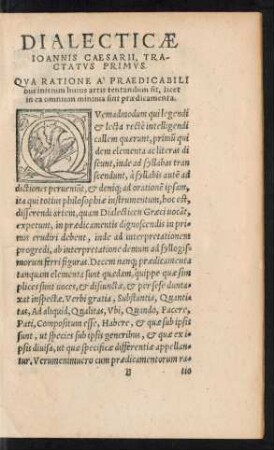 DIALECTICÆ
IOANNIS CAESARII, TRA-
CTATVS PRIMVS.
QVA RATIONE A' PRAEDICABILI
bus initium huius artis tentandum sit, licet
in ea omnium minima sint prædicamenta.
QVemadmodum qui legendi
& lecta rectè intelligendi
callem quærunt, primũ qui
dem elementa ac literas di
scunt, inde ad syllabas tran
scendunt, à syllabis autē ad
dictiones perueniũt, & deniq; ad orationē ipsam,
ita qui totius philosophiæ instrumentum, hoc est,
disserendi artem, quam Dialecticen Græci uocāt,
expetunt, in prædicamentis dignoscendis in pri-
mis erudiri debent, inde ad interpretationem
progredi, ab interpretatione demum ad syllogis-
morum ferri figuras. Decem nanq; prædicamenta
tanquam elementa sunt quædam, quippe quæ sim
plices sint uoces, & disiunctæ, & per sese dunta-
xat inspectæ. Verbi gratia, Substantia, Quanti-
tas, Ad aliquid, Qualitas, Vbi, Quando, Facere,
Pati, Compositum esse, Habere, & quæ sub ipsis
sunt, ut species sub ipsis generibus, & quæ ex i-
psis diuisa, ut quæ specificæ differentiæ appellan-
tur. Verumenimuero cum prædicamentorum ra-
B tio